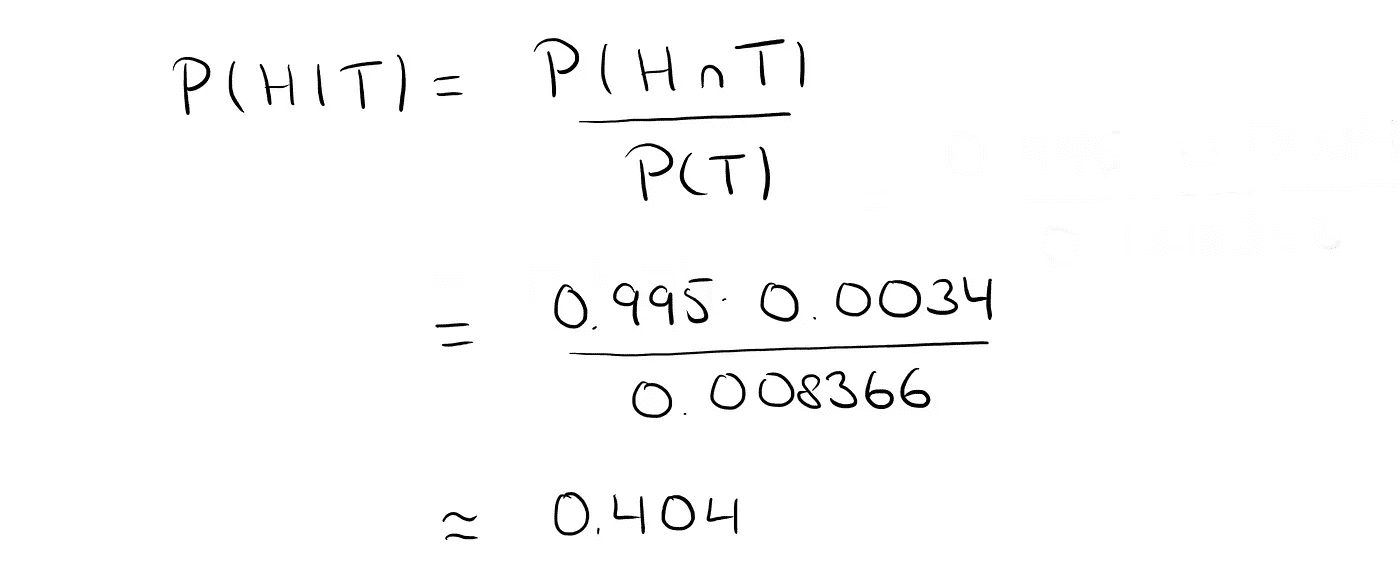 P(H|T) = P(H∩T)
P(T)
= 0.995 · 0.0034
0.008366
≈ 0.404